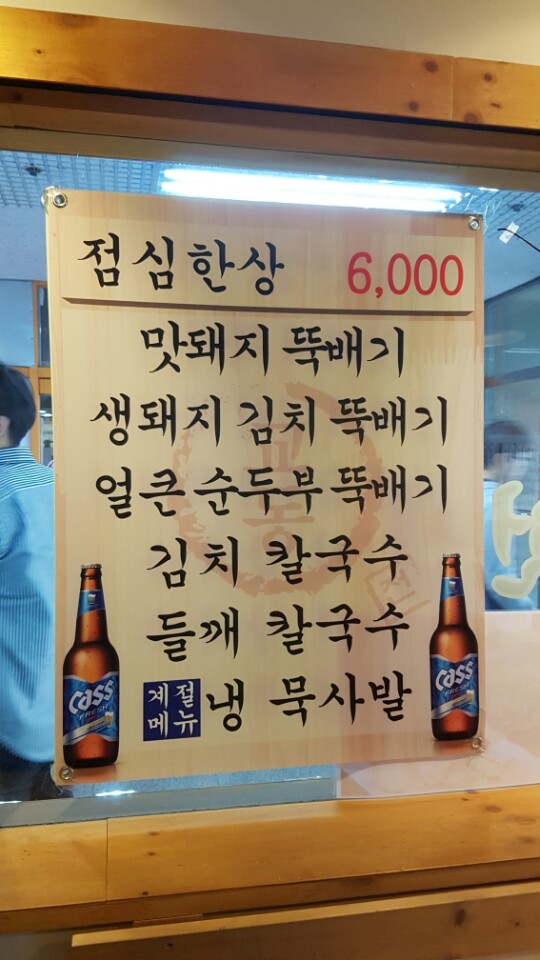 점심한상 6,000
맛돼지 뚝배기
생돼지 김치 뚝배기
얼큰 순두부 뚝배기
김치 칼국수
들깨 칼국수
계절 메뉴 냉 묵사발
Cass FRESH
Cass FRESH